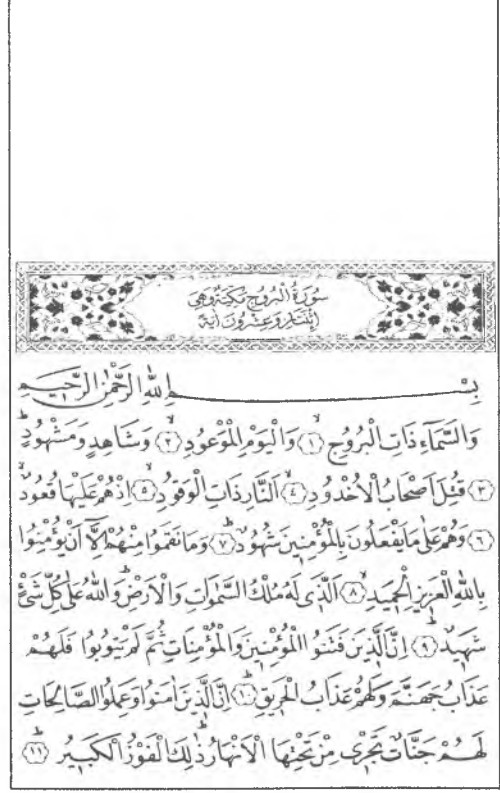 سُورَةُ الْبُرُوجِ مَكِّيَّةٌ وَهِيَ
اِثْنَتَانِ وَعِشْرُونَ اٰيَةً
بِسْمِ اللّٰهِ الرَّحْمٰنِ الرَّحِيمِ
وَالسَّمَاءِ ذَاتِ الْبُرُوجِ ﴿١﴾ وَالْيَوْمِ الْمَوْعُودِ ﴿٢﴾ وَشَاهِدٍ وَمَشْهُودٍ
﴿٣﴾ قُتِلَ اَصْحَابُ الْاُخْدُودِ ﴿٤﴾ اَلنَّارِ ذَاتِ الْوَقُودِ ﴿٥﴾ اِذْ هُمْ عَلَيْهَا قُعُودٌ
﴿٦﴾ وَهُمْ عَلٰى مَا يَفْعَلُونَ بِالْمُؤْمِنِينَ شُهُودٌ ﴿٧﴾ وَمَا نَقَمُوا مِنْهُمْ اِلَّا اَنْ يُؤْمِنُوا
بِاللّٰهِ الْعَزِيزِ الْحَمِيدِ ﴿٨﴾ اَلَّذِى لَهُ مُلْكُ السَّمٰوَاتِ وَالْاَرْضِ وَاللّٰهُ عَلٰى كُلِّ شَىْءٍ
شَهِيدٌ ﴿٩﴾ اِنَّ الَّذِينَ فَتَنُوا الْمُؤْمِنِينَ وَالْمُؤْمِنَاتِ ثُمَّ لَمْ يَتُوبُوا فَلَهُمْ
عَذَابُ جَهَنَّمَ وَلَهُمْ عَذَابُ الْحَرِيقِ ﴿١٠﴾ اِنَّ الَّذِينَ اٰمَنُوا وَعَمِلُوا الصَّالِحَاتِ
لَهُمْ جَنَّاتٌ تَجْرِى مِنْ تَحْتِهَا الْاَنْهَارُ ذٰلِكَ الْفَوْزُ الْكَبِيرُ ﴿١١﴾